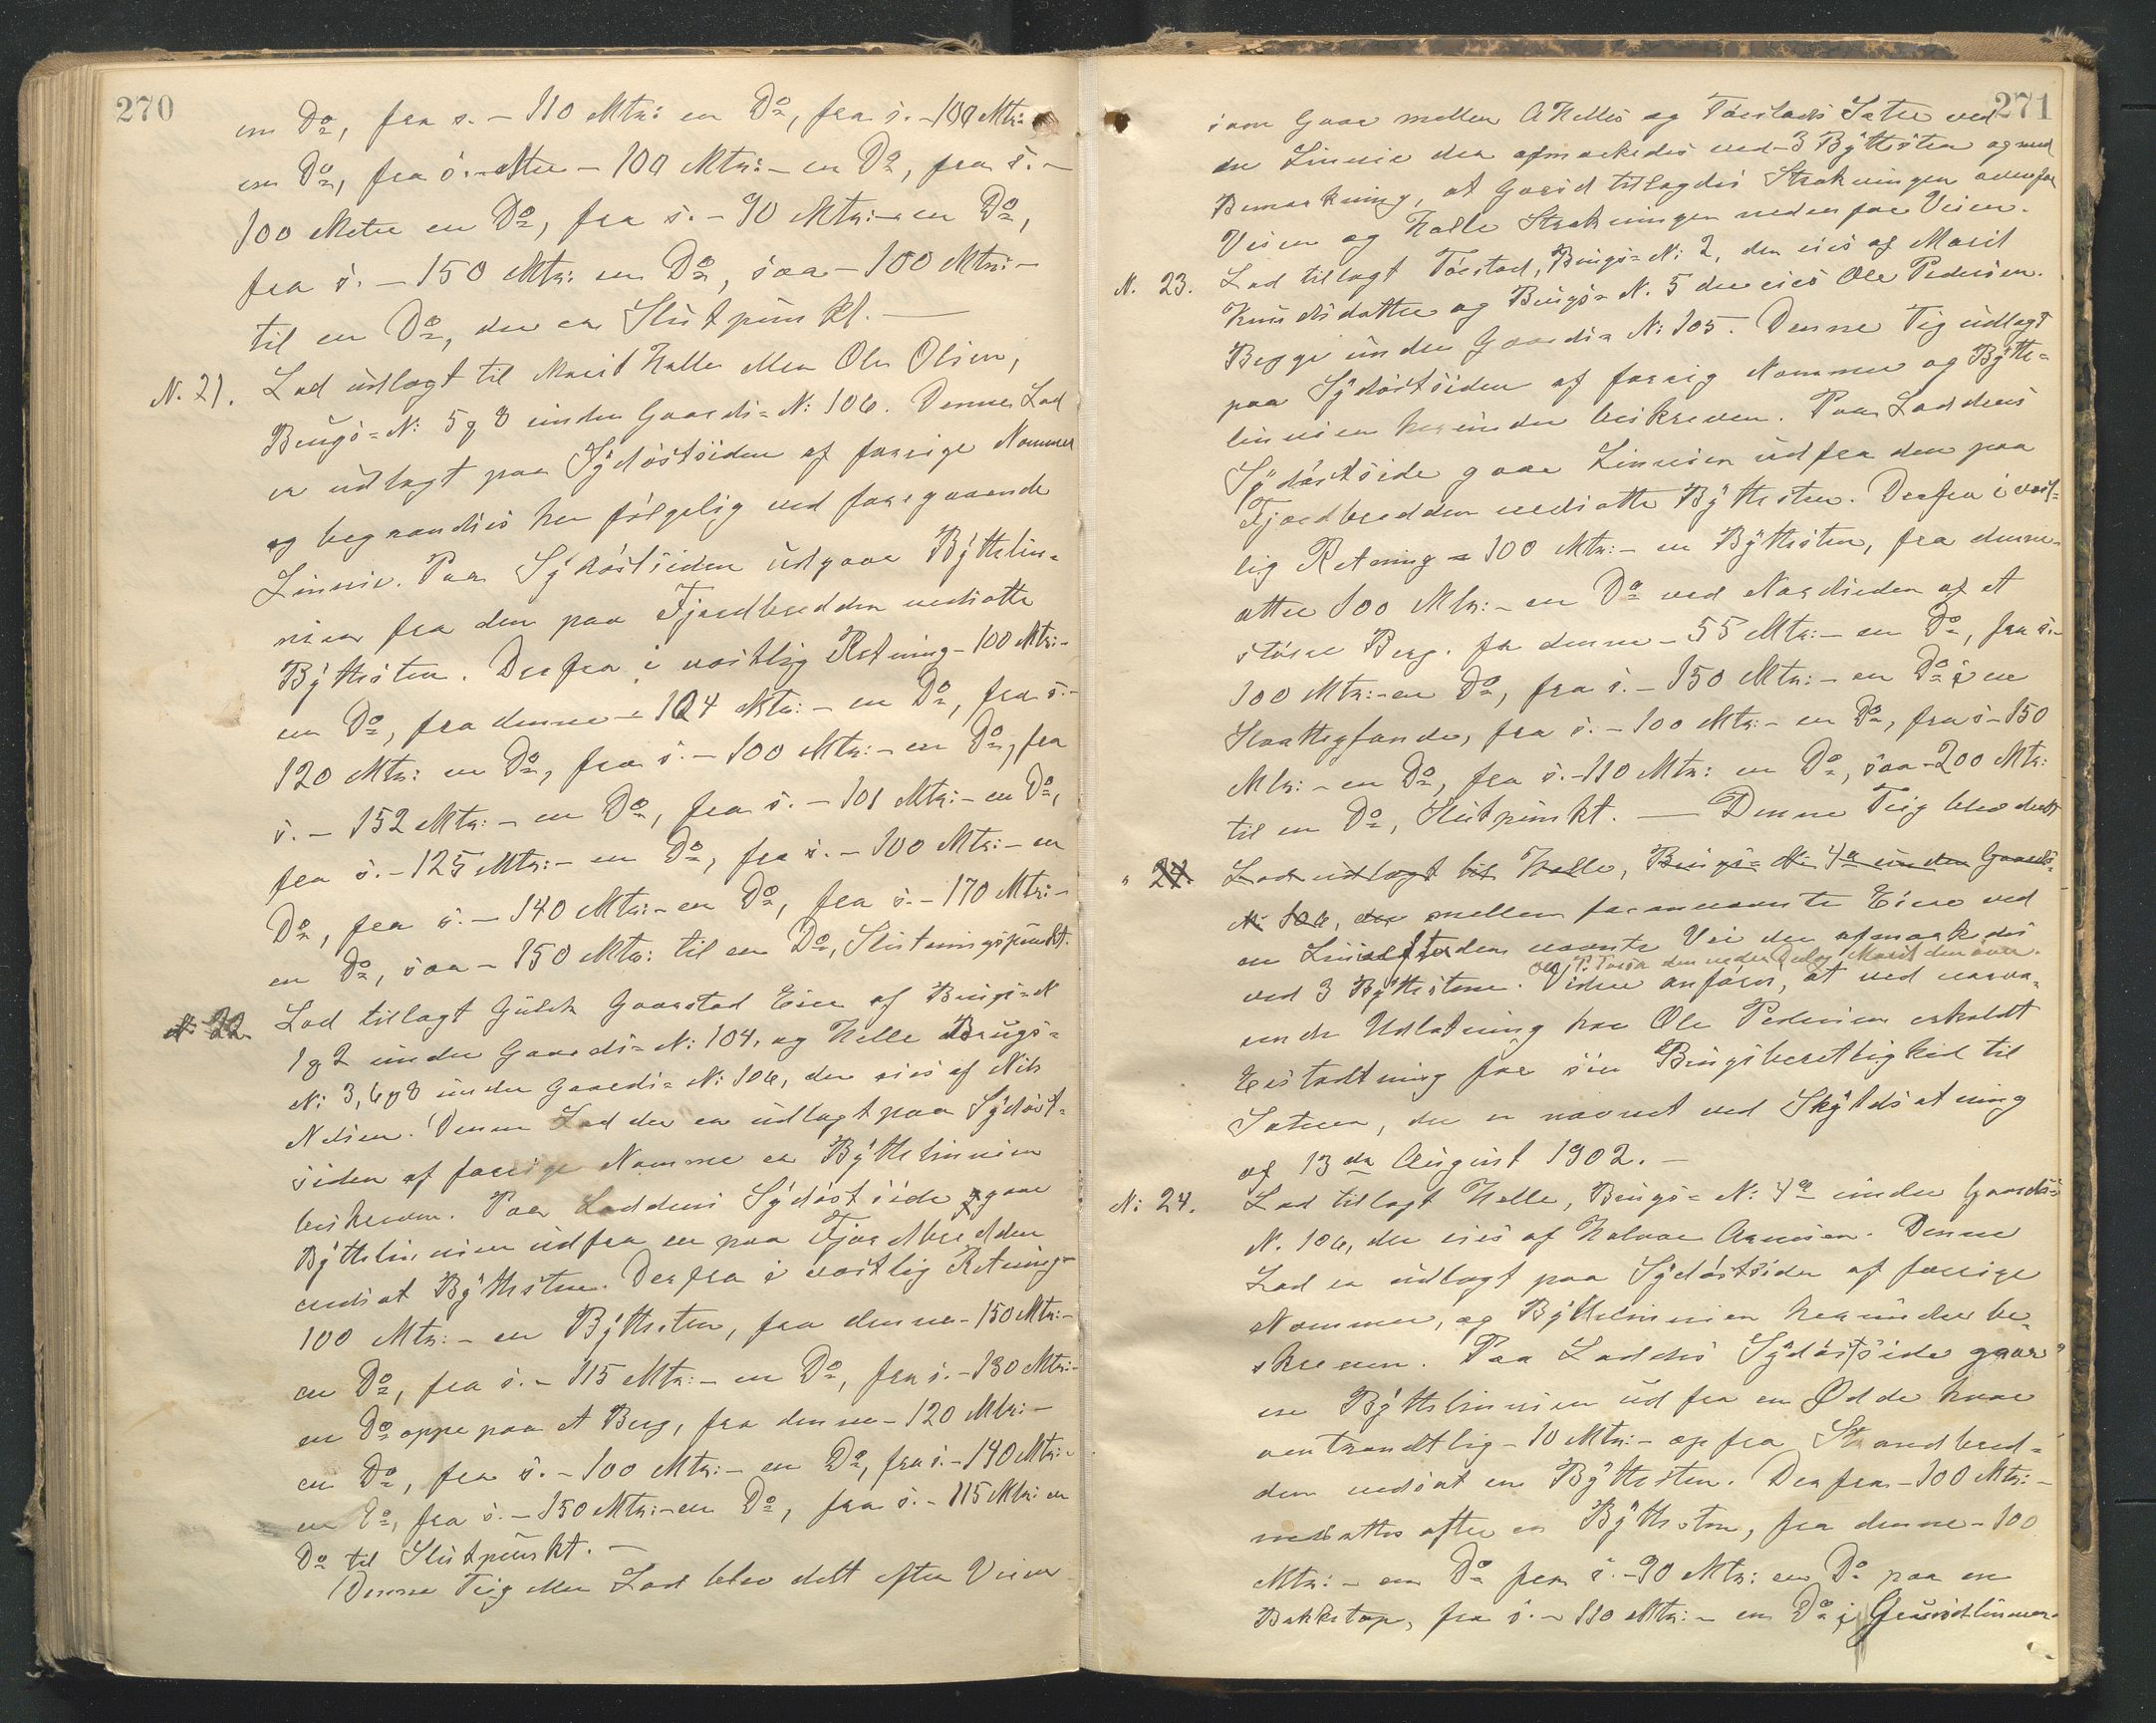 270
en Do, fra s. - 110 Mtr: en Do, fra s. - 100 Mtr:
en Do, fra s. - atter - 100 Mtr: - en Do, fra s. -
100 Meter en Do, fra s. - 90 Mtr: - en Do,
fra s. - 150 Mtr: en Do, saa - 100 Mtr: -
til en Do, der er Slutpunkt. -
N. 21. Lod udlagt til Marit Helle eller Ole Olsen,
Brugs= N: 5 & 8 under Gaards= N: 106. Denne Lod
er udlagt paa Sydøstsiden af forrige Nommer
og begrændses her følgelig ved foregaaende
Linnie. Paa Sydøstsiden udgaar Byttelin=
nien fra den paa Fjordbredden nedsatte
Byttesten. Derfra i vestlig Retning - 100 Mtr: -
en Do, fra denne - 104 Mtr: - en Do, fra s. -
120 Mtr: en Do, fra s. - 100 Mtr: - en Do, fra
s. - 152 Mtr: - en Do, fra s. - 101 Mtr: - en Do,
fra s. - 125 Mtr: - en Do, fra s. - 100 Mtr: - en
Do, fra s. - 140 Mtr: - en Do, fra s. - 170 Mtr: -
en Do, saa - 150 Mtr: til en Do, Slutningspunkt.
N: 22. Lod tillagt Gurid Gaarstad Eier af Brugs= N
1 & 2 under Gaards= N: 104, og Helle Brugs=
N: 3, 6 & 8 under Gaards= N: 106, der eies af Nils
Nelsen. Denne Lod der er udlagt paa Sydøst=
siden af forrige Nomme er Byttelinnien
beskreven. Paa Loddens Sydøstside gaar
Byttelinnien ud fra en paa Fjordbredden
nedsat Byttesten. Derfra i vestlig Retning -
100 Mtr: - en Byttesten, fra denne - 150 Mtr: -
en Do, fra s. - 115 Mtr: - en Do, fra s. - 130 Mtr: -
en Do oppe paa et Berg, fra denne - 120 Mtr: -
en Do, fra s. - 100 Mtr: - en Do, fra s. - 140 Mtr: -
en Do, fra s. - 150 Mtr: - en Do, fra s. - 115 Mtr: en
Do til Slutpunkt. -
Denne Teig eller Lod blev delt efter Veien
271
som gaar mellem Helles og Tørstads Sæter ved
en Linnie der afmærkedes ved 3 Byttesten og med
Bemærkning, at Gurid tillagdes Strækningen ovenfor
Veien og Helle Strækningen nedenfor Veien.
N. 23. Lod tillagt Tørstad, Brugs= N: 2, der eies af Marit
Knudsdatter og Brugs= N. 5 der eies Ole Pedersen.
Begge under Gaards= N: 105. Denne Teig udlagt
paa Sydøstsiden af forrig Nommer og Bytte=
linnien herunder beskreven. Paa Loddens
Sydøstside gaar Linnien ud fra den paa
Fjordbredden nedsatte Byttesten. Derfra i vest=
lig Retning - 100 Mtr: - en Byttesten, fra denne
atter 100 Mtr: - en Do ved Nordsiden af et
større Berg. fra denne - 55 Mtr: - en Do, fra s. -
100 Mtr: - en Do, fra s. - 150 Mtr: - en Do i en
fra s. - 100 Mtr: - en Do, fra s - 150
Mtr: - en Do, fra s. - 110 Mtr: en Do, saa - 200 Mtr:
til en Do, Slutpunkt. - Denne Teig blev delt
" 24. Lod udlagt til Helle, Brugs= N: 4a under Gaards=
N: 106, der mellem forannævnte Eiere ved
en Linie efter den nævnte Vei der afmærkedes
Ole P. den nedre Del og Marit den øvre.
ved 3 Byttestene. Videre anføres, at ved nærvæ=
rende Udlodning har Ole Pedersen erholdt
Erstadtning for sin Brugsberettighed til
Sæteren, der er nævnt ved Skyldsætning
af 13de August 1902. -
N: 24. Lod tillagt Helle, Brugs= N: 4a under Gaards=
N. 106, der eies af Halvor Arnesen. Denne
Lod er udlagt paa Sydøstsiden af forrige
Nommer, og Byttelinnien herunder be=
skreven. Paa Loddes Sydøstside gaar
en Byttelinnien ud fra en Odde hvor
omtrendtlig - 10 Mtr: - op fra Strandbred=
den nedsat en Byttesten. Derfra - 100 Mtr: -
nedsattes atter en Byttesten, fra denne - 100
Mtr: - en Do fra s. - 90 Mtr: en Do paa en
Bakketop, fra s. - 110 Mtr: - en Do i